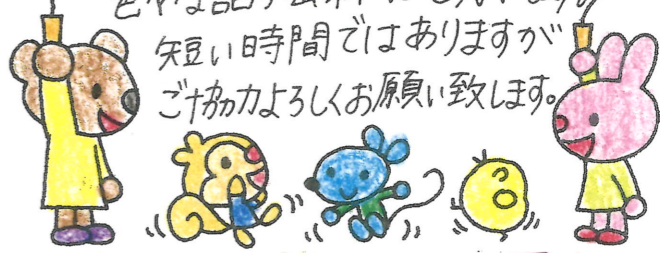 色々な話
短い時間ではありますが
ご協力よろしくお願い致します。